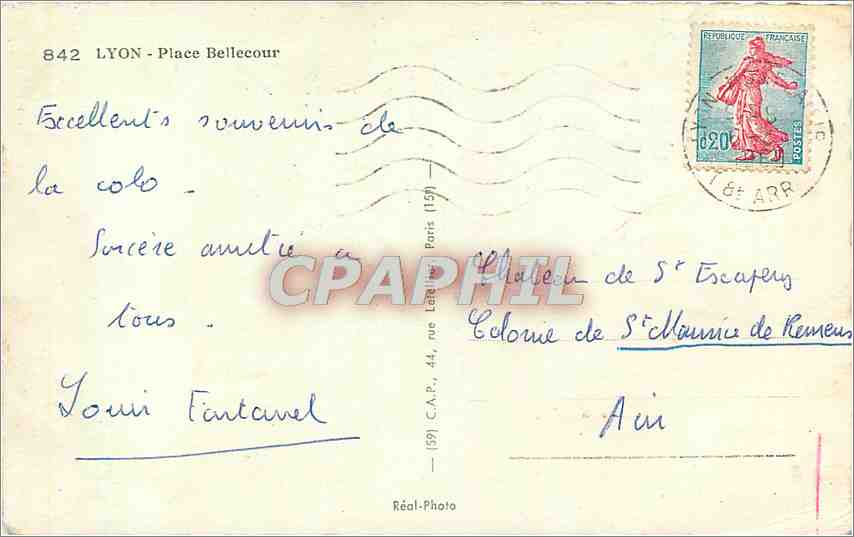 842 LYON - Place Bellecour
Excellents souvenirs de
la colo.
Sincère amitié à
tous.
Louis Fontanel
RÉPUBLIQUE FRANÇAISE
0,20
POSTES
ARR
(59) C.A.P., 44, rue Letellier, Paris (15e)
Château de St Exupery
Colonie de St Maurice de Remens
Ain
Réal-Photo
CPAPHIL